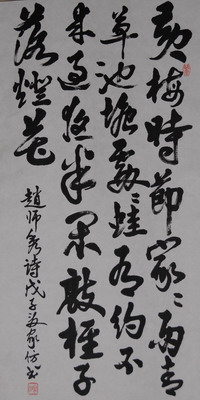 黄梅時節家〻雨青
草池塘處〻蛙有约不
来過夜半闲敲棋子
落燈花
趙师秀诗戊子
书